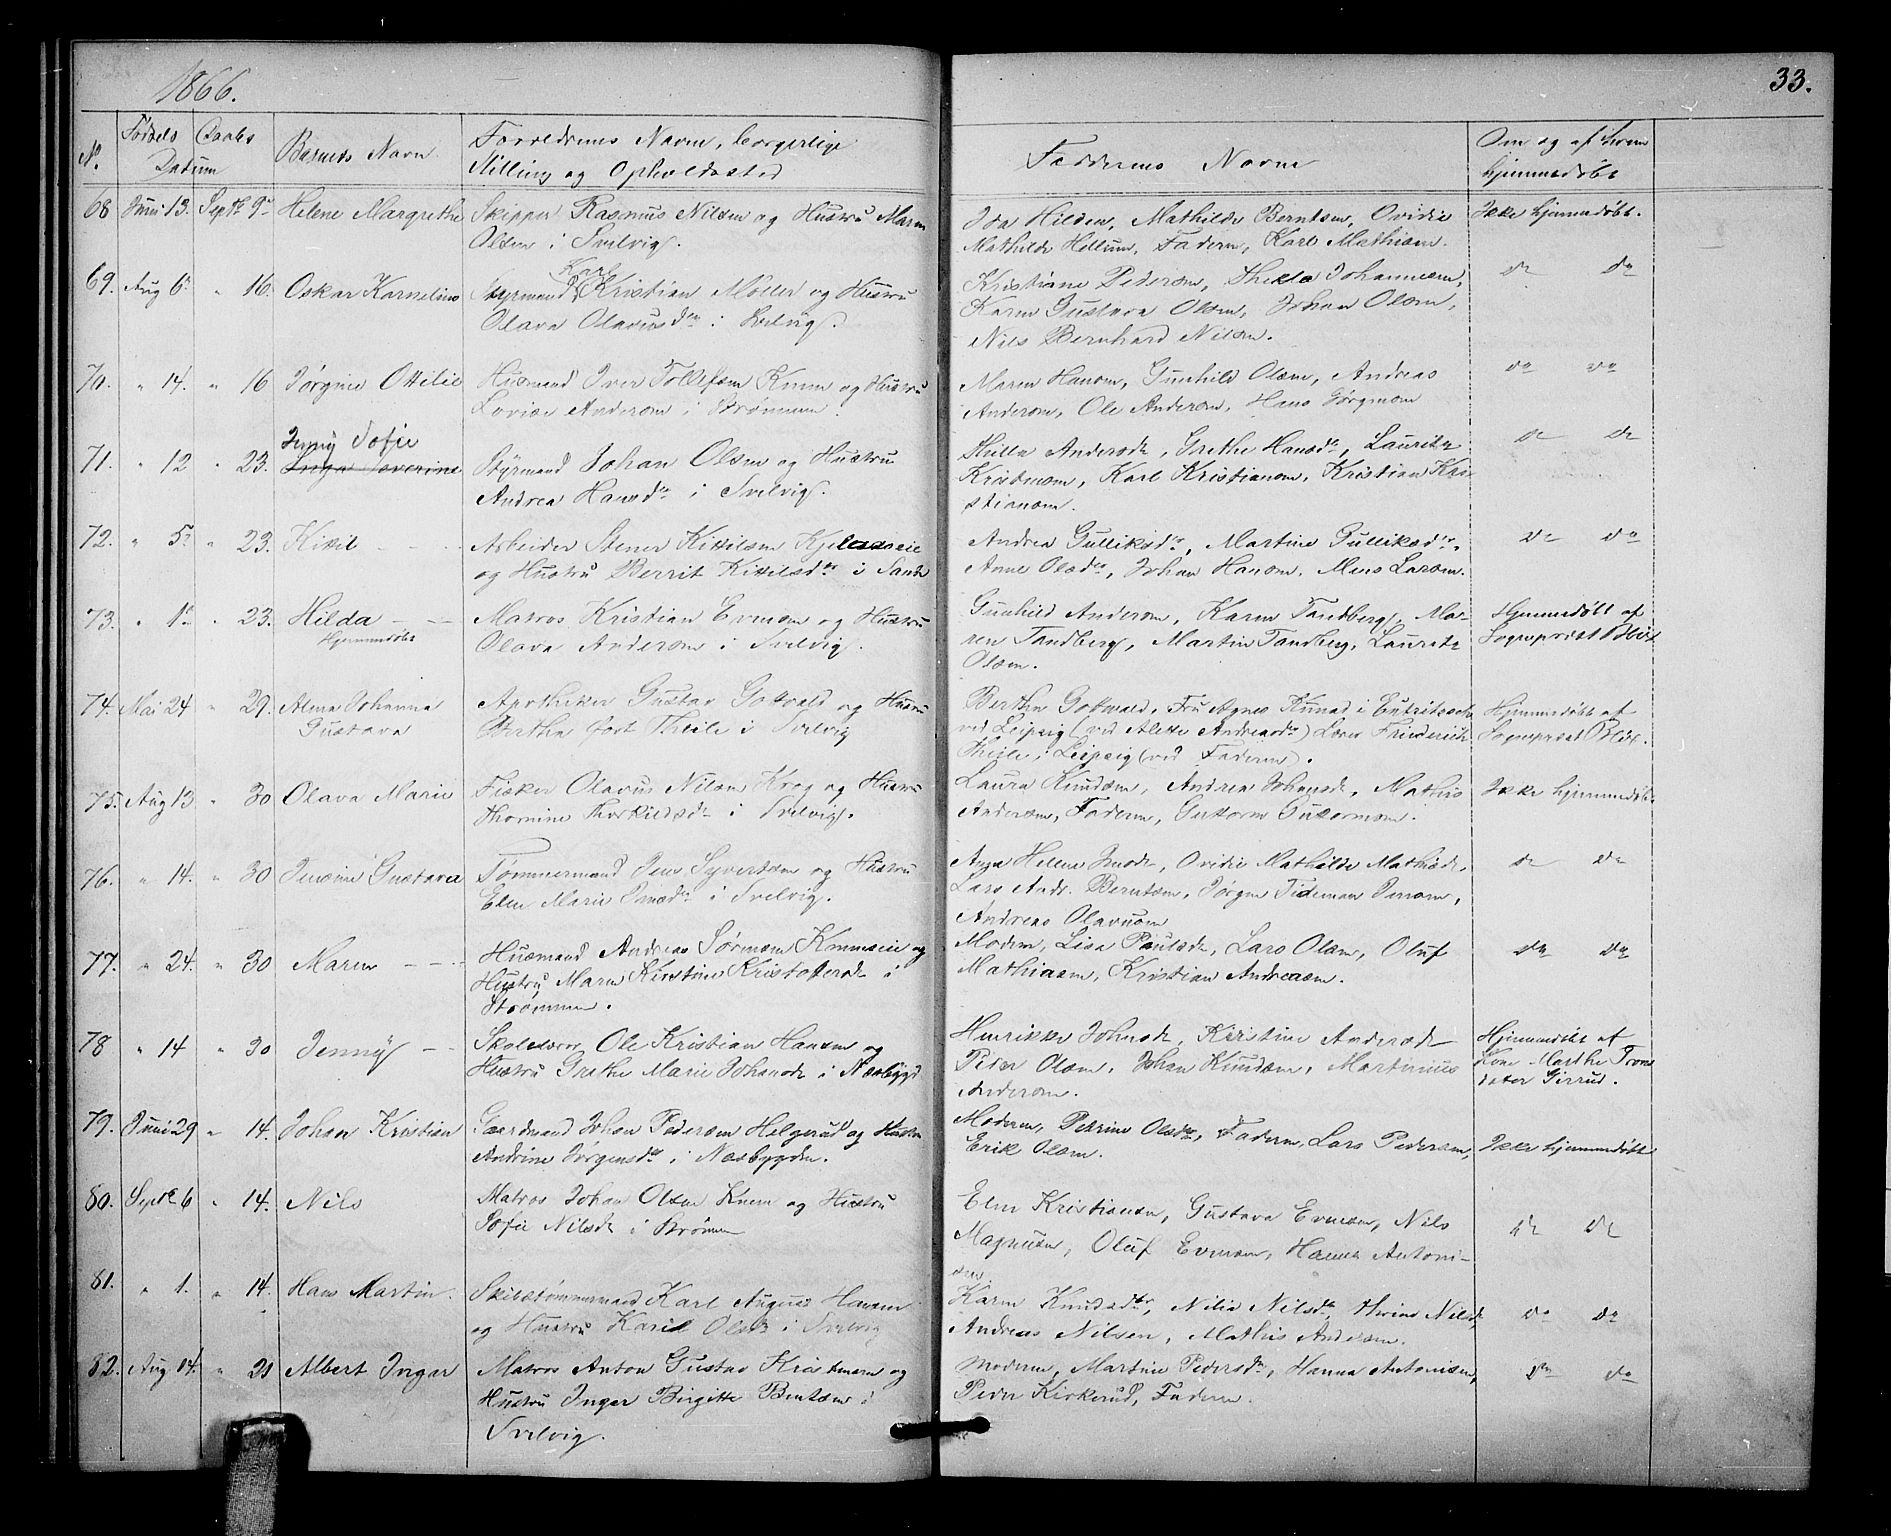 1866.
33.
No. Fødsels Daabs Datum Barnets Navn. Forældrenes Navn, borgerlige
Stilling og Opholdssted
Faddernes Navne
Om og af hvem
hjemmedøbt
68 Juni 13. Septbr 9de Helene Margrethe Skipper Rasmus Nilsen og Hustru Maren
Olsen i Svelvig.
Ida Hilden, Mathilde Berntsen, Ovidie
Mathilde Hellum, Faderen, Karl Mathisen.
Ikke hjemmedøbt.
69. Aug 6te " 16. Oskar Kornelius Styrmand Karl Kristian Møller og Hustru
Olava Olavusdtr i Svelvig.
Kristiane Pedersen, Thekla Johannesen,
Karen Gustava Olsen, Johan Olsen,
Nils Bernhard Nilsen.
do do
70. " 14. " 16 Jørgine Ottilie Husmand Iver Tollefsen Knem og Hustru
Lovise Andersen i Strømmen.
Maren Hansen, Gunhild Olsen, Andreas
Andersen, Ole Andersen, Hans Jørgensen
do do
71. " 12 " 23. Jenny Sofie
Inga Severine Styrmand Johan Olsen og Hustru
Andrea Hansdtr i Svelvig.
Thilla Andersdr, Grethe Hansdtr, Lauritz
Kristensen, Karl Kristiansen, Kristian Kri-
stiansen.
do do
72. " 5te " 23. Kittil Arbeider Stener Kittilsen
og Hustru Berrit Kittilsdtr i Sande
Andrea Gulliksdtr, Martine Gulliksdtr,
Anne Olsdtr, Johan Hansen, Mens Larsen.
do do
73. " 1te " 23. Hilda
Hjemmedøbt Matros Kristian Evensen og Hustru
Olava Andersen i Svelvig.
Gunhild Andersen, Karen Tandberg, Ma-
ren Tandberg, Martin Tandberg, Lauritz
Olsen.
Hjemmedøbt af
Sogneprest Blix
74. Mai 24 " 29. Alma Johanna
Gustava Apotheker Gustav Gottvald og Hustru
Bertha født Theile i Svelvig
Bertha Gottwald, Fru Agnes Kunad i Eutritzsch
ved Leipzig (ved Alette Andreasdtr) Lærer Friederich
Theile i Leipzig (ved Faderen).
Hjemmedøbt af
Sogneprest Blix.
75. Aug 13 " 30 Olava Marie Fisker Olavus Nilsen Krog og Hustru
Thomine Thorkildsdr i Svelvig.
Laura Knudsen, Andrea Johnsdr, Mathis
Andersen, Faderen, Guttorm Guttormsen.
Ikke hjemmedøbt
76. " 14. " 30 Jensine Gustava Tømmermand Jens Syvertsen og Hustru
Elen Marie Jensdtr i Svelvig.
Anna Helene Jensdr, Ovidie Mathilde Mathisdr,
Lars Andr. Berntsen, Jørgen Tideman Jensen,
Andreas Olavusen
do do
77. " 24. " 30 Maren Husmand Andreas Sørensen Knemseie og
Hustru Maren Kirstine Kristoffersdr i
Strømmen.
Moderen, Lisa Paulsdr, Lars Olsen, Oluf
Mathiasen, Kristian Andreasen.
do do
78 " 14 " 30 Jenny Skolelærer Ole Kristian Hansen og
Hustru Grethe Marie Johansdr i Næsbygd
Henrikke Johnsdr, Kirstine Andersdr
Peder Olsen, Johan Knudsen, Martinius
Andersen.
Hjemmedøbt af
Kone Marthe Trons
datter Girrud.
79. Juni 29 " 14. Johan Kristian Gaardmand Johan Pedersen Helgerud og Hustru
Andrine Jørgensdtr i Næsbygden.
Moderen, Petrine Olsdtr, Faderen, Lars Pedersen,
Erik Olsen.
Ikke hjemmedøbt
80. Septbr 6 " 14. Nils Matros Johan Olsen Knem og Hustru
Sofie Nilsdr i Strømm
Elen Kristiansen, Gustava Evensen, Nils
Magnusen, Oluf Evensen, Hannes Antoni-
sen.
do do
81. " 1. " 14. Hans Martin. Skibstømmermand Karl August Hansen
og Hustru Karid Olsdr i Svelvig
Karen Knudsdtr, Nilia Nilsdtr, Thrine Nilsdr
Andreas Nilsen, Mathis Andersen.
do do
82. Aug 14. " 21 Albert Ingar Matros Anton Gustav Kristensen og
Hustru Inger Birgitte Berntsen i
Svelvig.
Moderen, Martine Pedersdtr, Hanna Antonisen,
Peder Kirkerud, Faderen.
do do